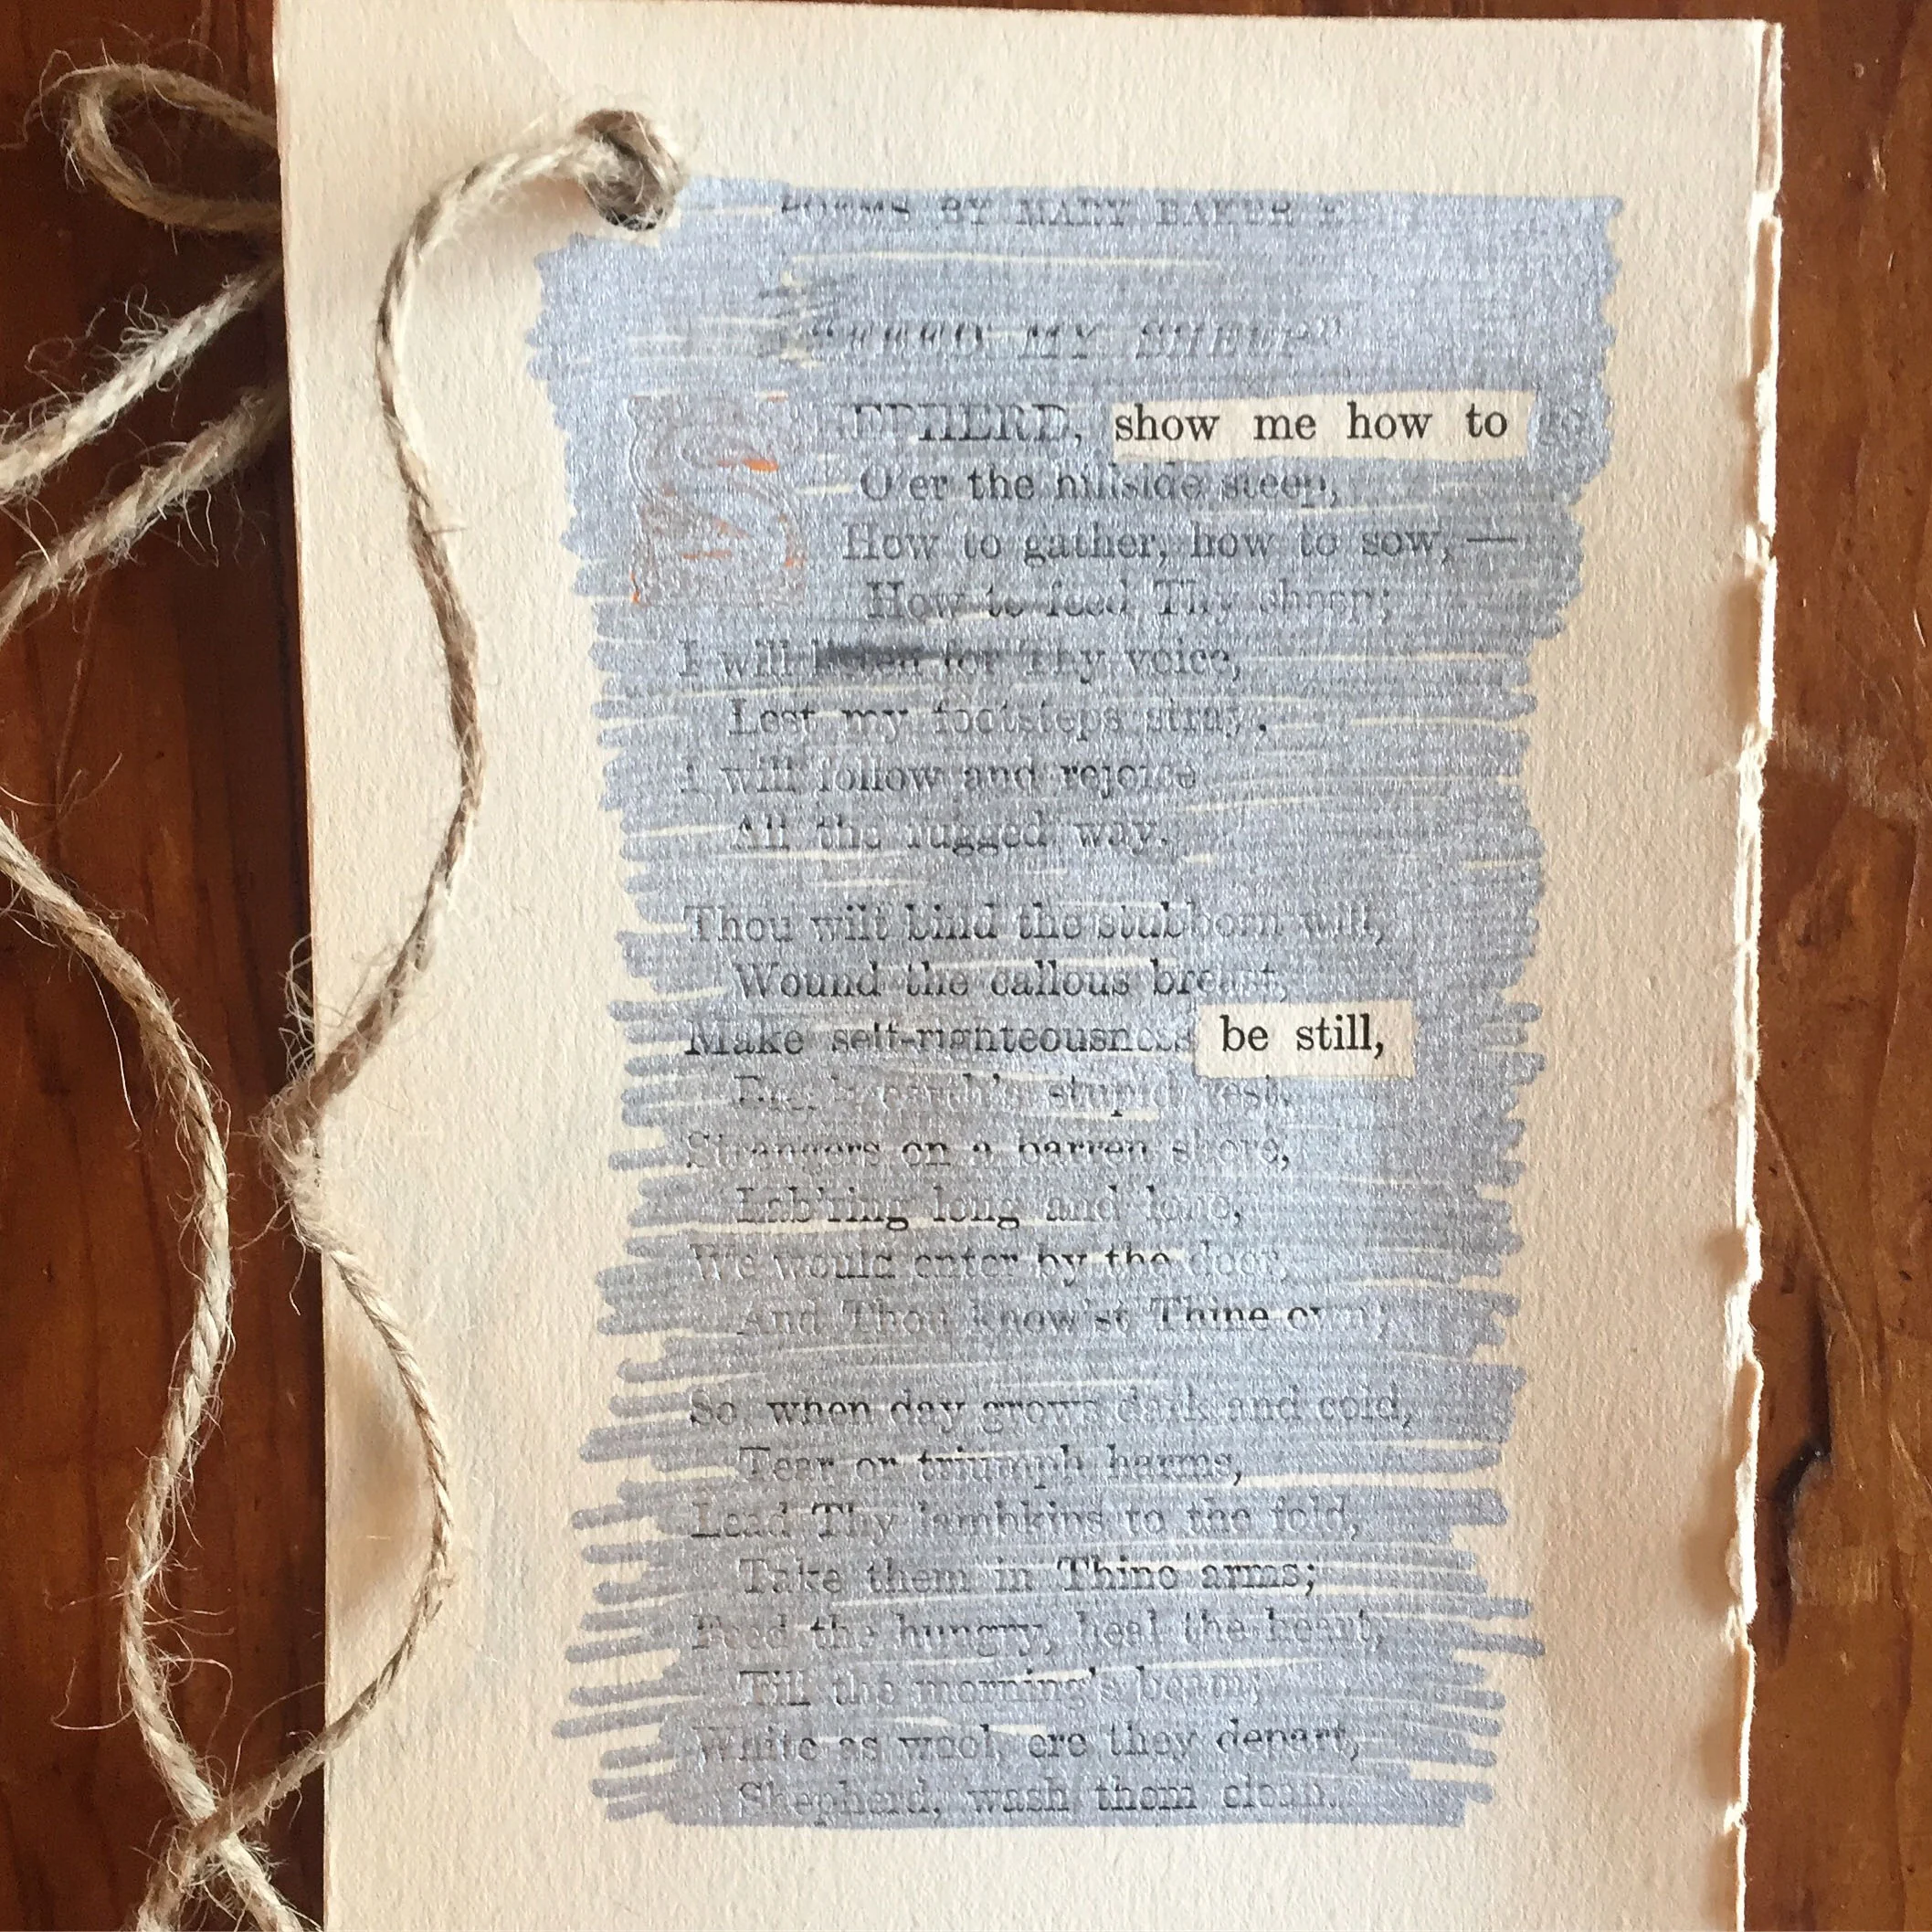 POEMS BY MARY BAKER E
"FEED MY SHEEP"
SHEPHERD, show me how to go
O'er the hillside steep,
How to gather, how to sow,—
How to feed Thy sheep;
I will listen for Thy voice,
Lest my footsteps stray,
I will follow and rejoice
All the rugged way.
Thou wilt bind the stubborn will,
Wound the callous breast,
Make self-righteousness be still,
Break earth's stupid rest.
Strangers on a barren shore,
Lab'ring long and lone,
We would enter by the door,
And Thou know'st Thine own;
So, when day grows dark and cold,
Tear or triumph harms,
Lead Thy lambkins to the fold,
Take them in Thine arms;
Feed the hungry, heal the heart,
Till the morning's beam;
White as wool, ere they depart,
Shepherd, wash them clean.